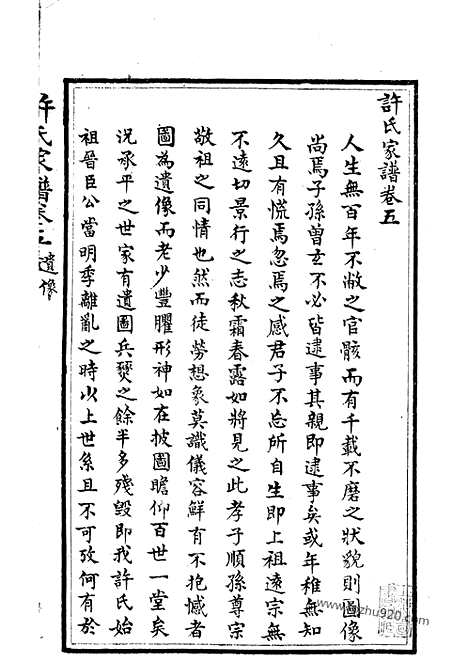 許氏家譜卷五
人生無百年不敝之官骸而有千載不磨之狀貌則圖像
尚焉子孫曾玄不必皆逮事其親即逮事矣或年稚無知
久且有慌焉忽焉之感君子不忘所自生即上祖遠宗無
不遠切景行之志秋霜春露如將見之此孝子順孫尊宗
敬祖之同情也然而徒勞想象莫識儀容鮮有不抱憾者
圖為遺像而老少豐臞形神如在披圖瞻仰百世一堂矣
況承平之世家有遺圖兵燹之餘半多殘毀即我許氏始
祖晉臣公當明季離亂之時以上世系且不可攷何有於
許氏家譜卷五 遺像
www.jiapu920.com